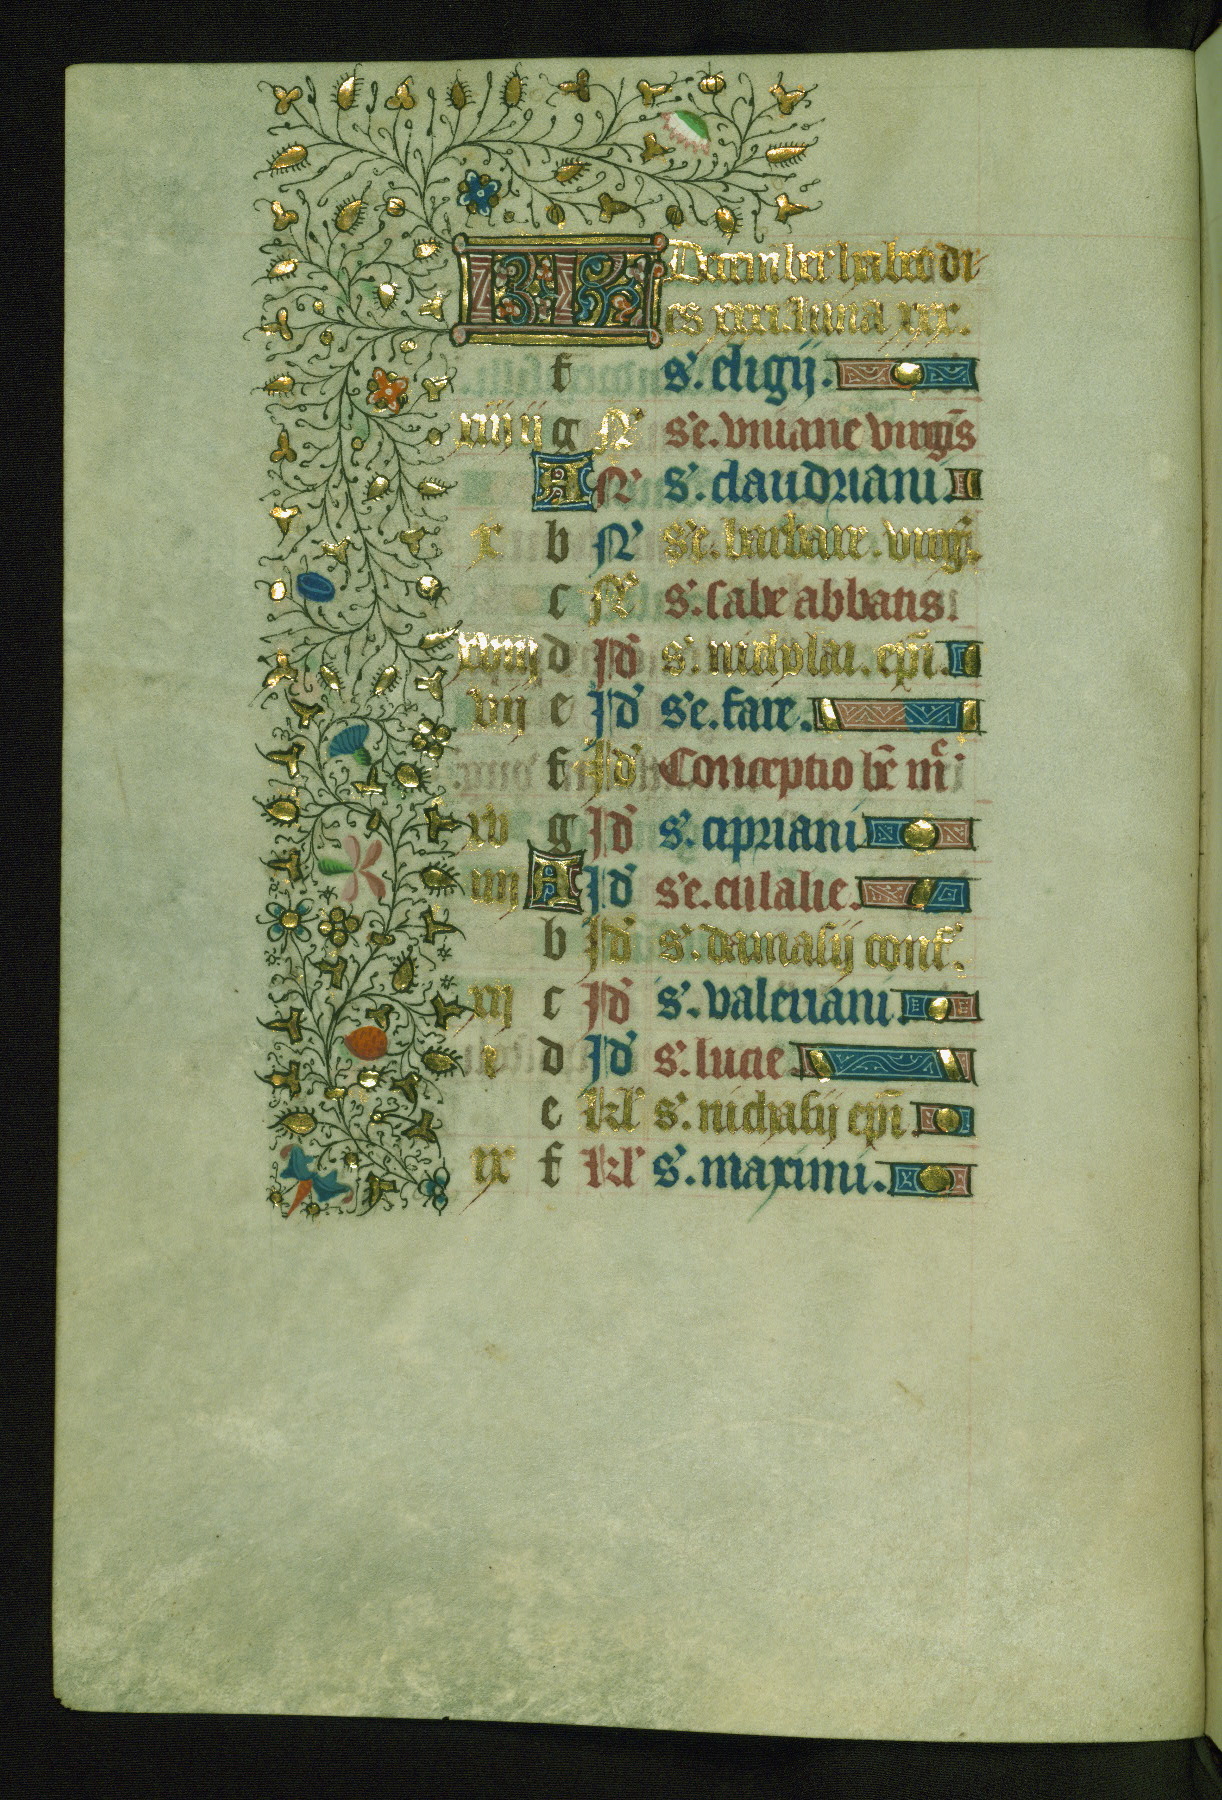 KL December habet di
es xxxi. luna xxx.
f s'. eligij.
xiij ij g N' s'e. viuiane virgis
A N' s'. claudriani
x b N' s'e. barbare. virgis.
c N' s'. sabe abbatis.
xviij d Id' s'. nicholai. epi.
vij e Id' s'e. fare.
f Id' Conceptio be mr
xv g Id' s'. cipriani
iiij A Id' s'e. eulalie.
b Id' s'. damasij conf.
xij c Id' s'. valeriani
i d Id' s'. lucie
e kl' s'. nichasij epi
ix f kl' s'. maximi.